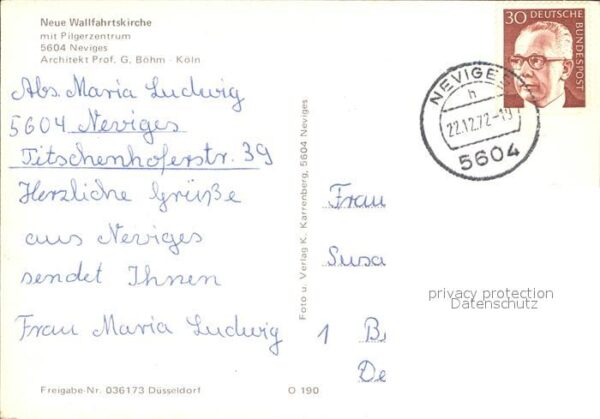 Neue Wallfahrtskirche
mit Pilgerzentrum
5604 Neviges
Architekt Prof. G. Böhm · Köln
Abs. Maria Ludwig
5604 Neviges
Titschenhoferstr. 39
Herzliche Grüße
aus Neviges
sendet Ihnen
Frau Maria Ludwig
Freigabe-Nr. 036173 Düsseldorf
O 190
Foto u. Verlag K. Karrenberg, 5604 Neviges
30 DEUTSCHE
BUNDESPOST
NEVIGES
h
22.12.72-19
5604
Frau
Susa
1 B
De
privacy protection
Datenschutz